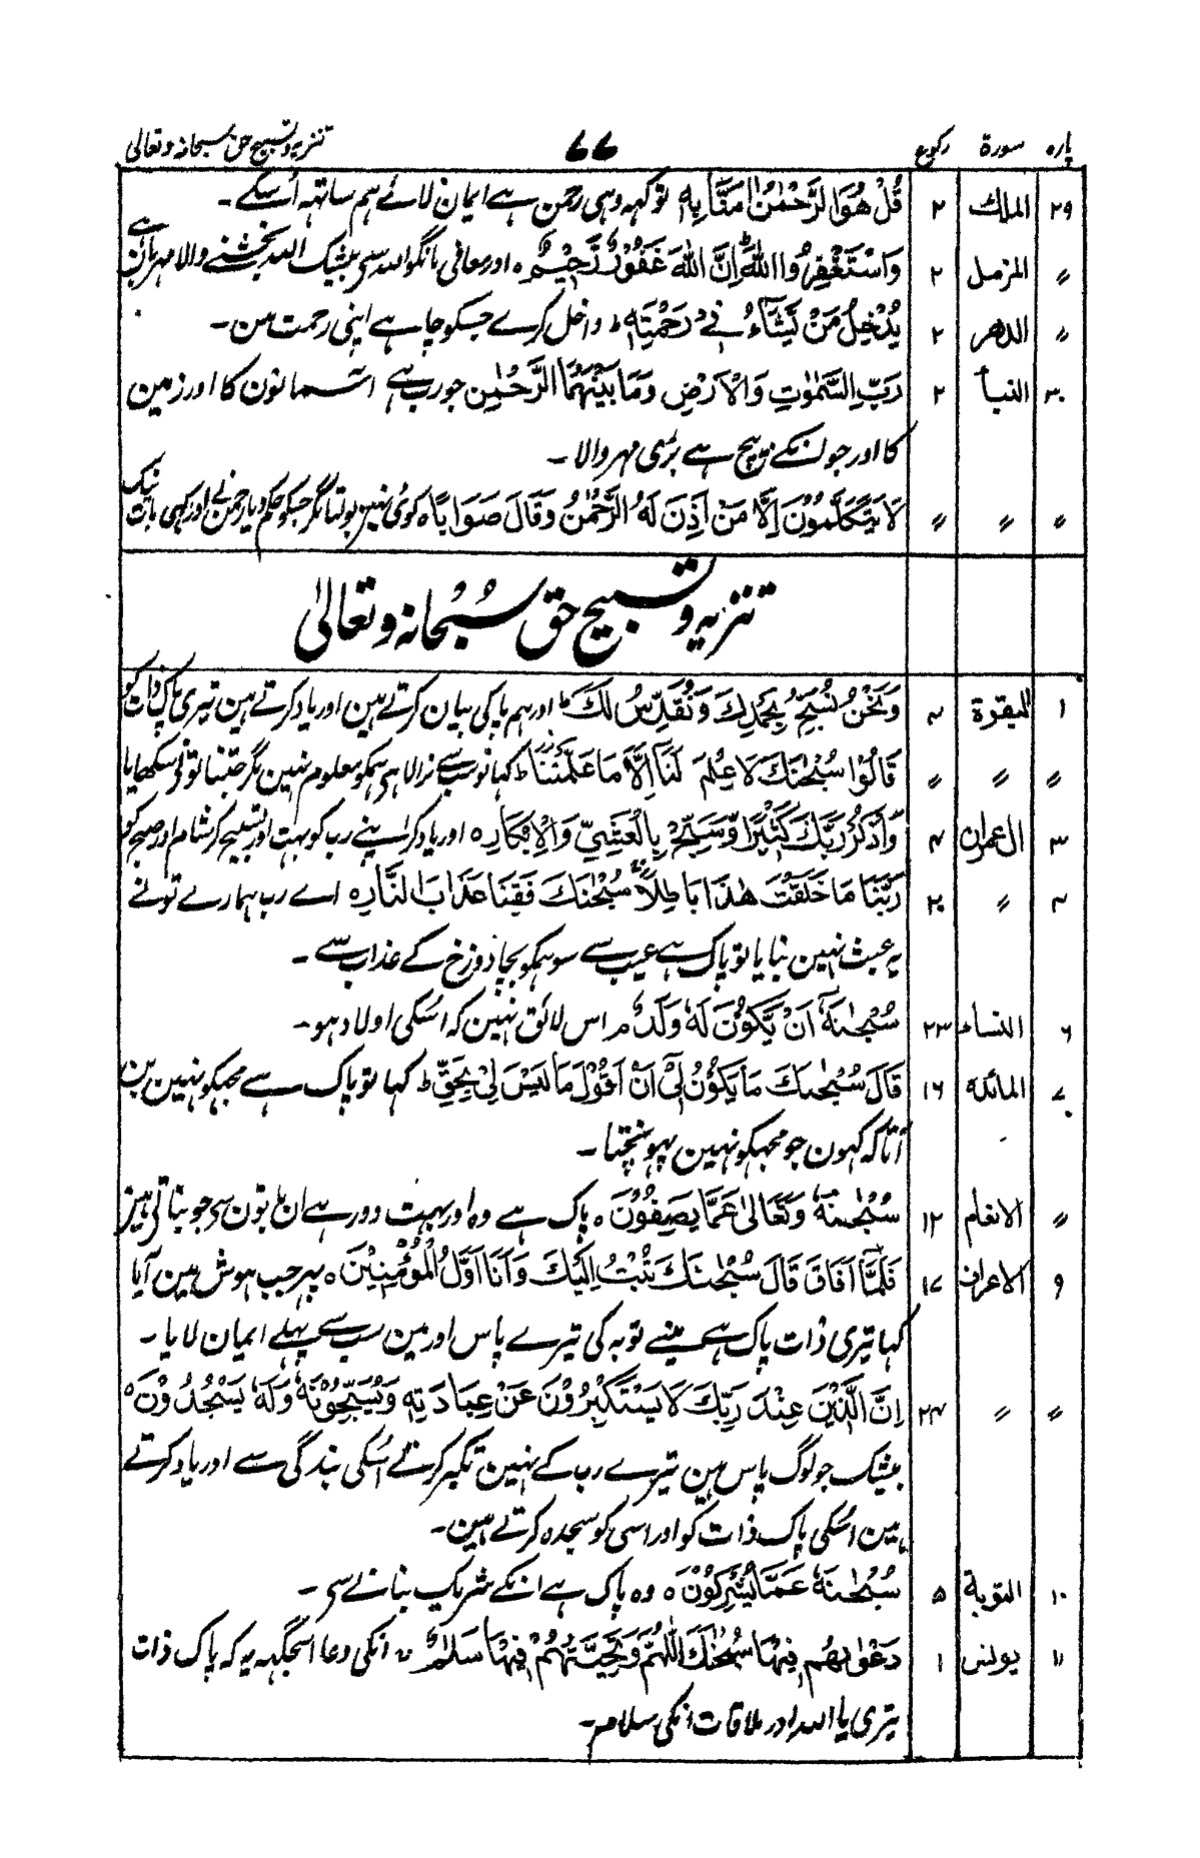 پارہ سورۃ رکوع ۷۷ تنزیہ و تسبیح حق سبحانہ و تعالی
۲۹ الملك ۲ قُلْ هُوَ الرَّحْمٰنُ اٰمَنَّا بِهٖ تو کہہ وہی رحمن ہے ایمان لائے ہم ساتھہ اُسکے۔
〃 المزمل ۲ وَاسْتَغْفِرُوا اللّٰهَ ؕ اِنَّ اللّٰهَ غَفُوْرٌ رَّحِيْمٌ ہ اور معافی مانگو اللہ سی بیشک اللہ بخشنے والا مہربان ہے
〃 الدهر ۲ يُدْخِلُ مَنْ يَّشَآءُ فِيْ رَحْمَتِهٖ ؕ داخل کرے جسکو چاہے اپنی رحمت مین۔
۳۰ النبأ ۲ رَبِّ السَّمٰوٰتِ وَالْاَرْضِ وَمَا بَيْنَهُمَا الرَّحْمٰنِ جو رب ہے آسمانون کا اور زمین
کا اور جو انکے بیچ ہے بڑی مہر والا۔
〃 〃 〃 لَا يَتَكَلَّمُوْنَ اِلَّا مَنْ اَذِنَ لَهُ الرَّحْمٰنُ وَقَالَ صَوَابًا ہ کوئی نہیں بولتا مگر جسکو حکم دیا رحمن نے اور کہی بات نیک
تنزیہ و تسبیح حق سُبُحانہ و تعالٰی
۱ البقرة ۴ وَنَحْنُ نُسَبِّحُ بِحَمْدِكَ وَنُقَدِّسُ لَكَ ؕ اور ہم پاکی بیان کرتے ہین اور یاد کرتے ہین تیری پاک ذات کو
〃 〃 〃 قَالُوْا سُبْحٰنَكَ لَا عِلْمَ لَنَا اِلَّا مَا عَلَّمْتَنَا ؕ کہا تو سب سے نرالا ہی ہمکو معلوم نہین مگر جتنا تو نی سکھایا
۳ ال عمران ۴ وَاذْكُرْ رَّبَّكَ كَثِيْرًا وَّسَبِّحْ بِالْعَشِيِّ وَالْاِبْكَارِ ہ اور یاد کر اپنے رب کو بہت اور تسبیح کر شام اور صبح کو
۴ 〃 ۲۰ رَبَّنَا مَا خَلَقْتَ هٰذَا بَاطِلًا ۚ سُبْحٰنَكَ فَقِنَا عَذَابَ النَّارِ ہ اے رب ہمارے تونے
یہ عبث نہین بنایا تو پاک ہے عیب سے سو ہمکو بچا دوزخ کے عذاب سے۔
۶ النساء ۲۳ سُبْحٰنَهٗ اَنْ يَّكُوْنَ لَهٗ وَلَدٌ م اس لائق نہین کہ اُسکی اولاد ہو۔
۷ المائدہ ۱۶ قَالَ سُبْحٰنَكَ مَا يَكُوْنُ لِيْ اَنْ اَقُوْلَ مَا لَيْسَ لِيْ بِحَقٍّ ؕ کہا تو پاک ہے مجہکو نہین بن
آتا کہ کہون جو مجہکو نہین پہونچتا۔
〃 الانعام ۱۲ سُبْحٰنَهٗ وَتَعَالٰى عَمَّا يَصِفُوْنَ ہ پاک ہے وہ اور بہت دور ہے ان باتون سی جو بناتی ہین
۹ الاعراف ۱۷ فَلَمَّا اَفَاقَ قَالَ سُبْحٰنَكَ تُبْتُ اِلَيْكَ وَاَنَا اَوَّلُ الْمُؤْمِنِيْنَ ہ پہر جب ہوش مین آیا
کہا تیری ذات پاک ہے مینے توبہ کی تیرے پاس اور مین سب سے پہلے ایمان لایا۔
〃 〃 ۲۴ اِنَّ الَّذِيْنَ عِنْدَ رَبِّكَ لَا يَسْتَكْبِرُوْنَ عَنْ عِبَادَتِهٖ وَيُسَبِّحُوْنَهٗ وَلَهٗ يَسْجُدُوْنَ ہ
بیشک جو لوگ پاس ہین تیرے رب کے نہین تکبر کرتے اُسکی بندگی سے اور یاد کرتے
ہین اُسکی پاک ذات کو اور اسی کو سجدہ کرتے ہین۔
۱۰ التوبة ۵ سُبْحٰنَهٗ عَمَّا يُشْرِكُوْنَ ہ وہ پاک ہے انکے شریک بنانے سی۔
۱۱ یونس ۱ دَعْوٰىهُمْ فِيْهَا سُبْحٰنَكَ اللّٰهُمَّ وَتَحِيَّتُهُمْ فِيْهَا سَلٰمٌ ۚ انکی دعا اسجگہہ یہ کہ پاک ذات
تیری یا اللہ اور ملاقات انکی سلام۔